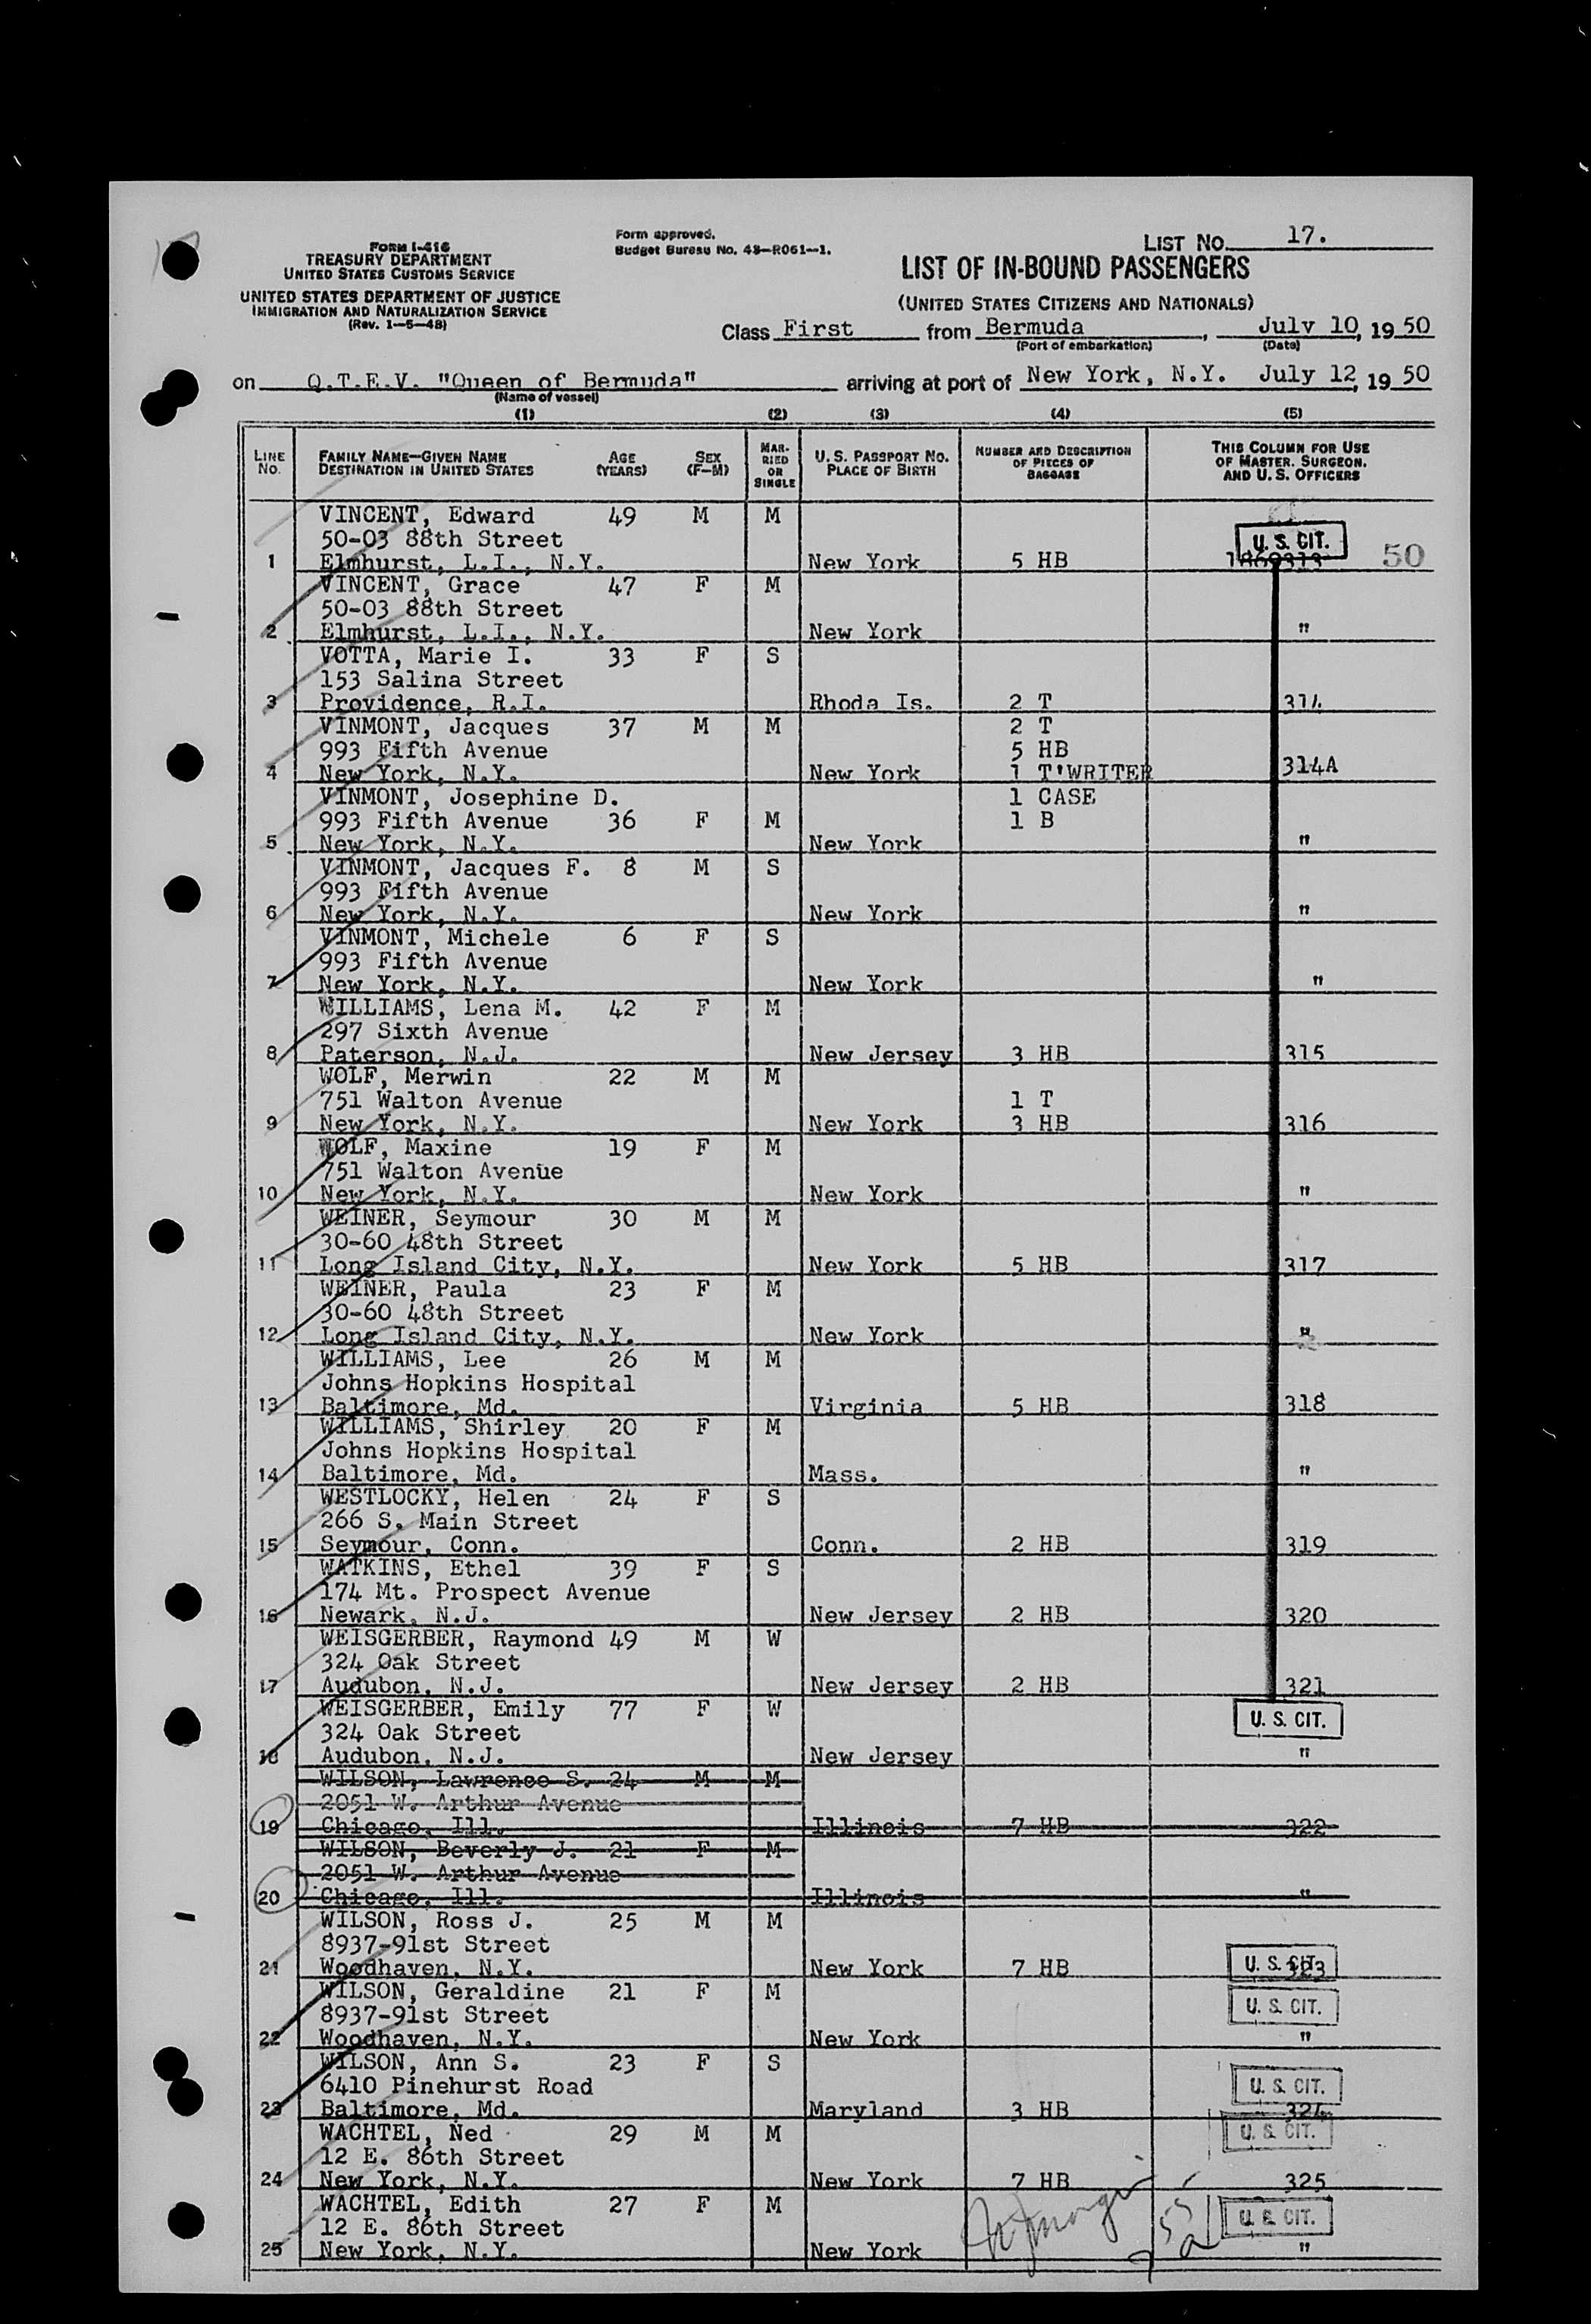 FORM I-416
TREASURY DEPARTMENT
UNITED STATES CUSTOMS SERVICE
UNITED STATES DEPARTMENT OF JUSTICE
IMMIGRATION AND NATURALIZATION SERVICE
(Rev. 1-5-48)
Form approved.
Budget Bureau No. 43-R061-1.
LIST NO. 17.
LIST OF IN-BOUND PASSENGERS
(UNITED STATES CITIZENS AND NATIONALS)
Class First from Bermuda, July 10, 19 50
(Port of embarkation) (Date)
on Q.T.E.V. "Queen of Bermuda" arriving at port of New York, N.Y. July 12, 19 50
(Name of vessel)
(1) (2) (3) (4) (5)
LINE NO. FAMILY NAME—GIVEN NAME DESTINATION IN UNITED STATES AGE (YEARS) SEX (F-M) MARRIED OR SINGLE U.S. PASSPORT NO. PLACE OF BIRTH NUMBER AND DESCRIPTION OF PIECES OF BAGGAGE THIS COLUMN FOR USE OF MASTER, SURGEON, AND U.S. OFFICERS
VINCENT, Edward 49 M M
50-03 88th Street U. S. CIT.
1 Elmhurst, L.I., N.Y. New York 5 HB 50
VINCENT, Grace 47 F M
50-03 88th Street
2 Elmhurst, L.I., N.Y. New York "
VOTTA, Marie I. 33 F S
153 Salina Street
3 Providence, R.I. Rhoda Is. 2 T 314
VINMONT, Jacques 37 M M 2 T
993 Fifth Avenue 5 HB
4 New York, N.Y. New York 1 T'WRITER 314A
VINMONT, Josephine D. 1 CASE
993 Fifth Avenue 36 F M 1 B
5 New York, N.Y. New York "
VINMONT, Jacques F. 8 M S
993 Fifth Avenue
6 New York, N.Y. New York "
VINMONT, Michele 6 F S
993 Fifth Avenue
7 New York, N.Y. New York "
WILLIAMS, Lena M. 42 F M
297 Sixth Avenue
8 Paterson, N.J. New Jersey 3 HB 315
WOLF, Merwin 22 M M
751 Walton Avenue 1 T
9 New York, N.Y. New York 3 HB 316
WOLF, Maxine 19 F M
751 Walton Avenue
10 New York, N.Y. New York "
WEINER, Seymour 30 M M
30-60 48th Street
11 Long Island City, N.Y. New York 5 HB 317
WEINER, Paula 23 F M
30-60 48th Street
12 Long Island City, N.Y. New York "
WILLIAMS, Lee 26 M M
Johns Hopkins Hospital
13 Baltimore, Md. Virginia 5 HB 318
WILLIAMS, Shirley 20 F M
Johns Hopkins Hospital
14 Baltimore, Md. Mass. "
WESTLOCKY, Helen 24 F S
266 S. Main Street
15 Seymour, Conn. Conn. 2 HB 319
WATKINS, Ethel 39 F S
174 Mt. Prospect Avenue
16 Newark, N.J. New Jersey 2 HB 320
WEISGERBER, Raymond 49 M W
324 Oak Street
17 Audubon, N.J. New Jersey 2 HB 321
WEISGERBER, Emily 77 F W
324 Oak Street U. S. CIT.
18 Audubon, N.J. New Jersey "
WILSON, Lawrence S. 24 M M
2051 W. Arthur Avenue
19 Chicago, Ill. Illinois 7 HB 322
WILSON, Beverly J. 21 F M
2051 W. Arthur Avenue
20 Chicago, Ill. Illinois "
WILSON, Ross J. 25 M M
8937-91st Street
21 Woodhaven, N.Y. New York 7 HB U. S. CIT. 323
WILSON, Geraldine 21 F M
8937-91st Street U. S. CIT.
22 Woodhaven, N.Y. New York "
WILSON, Ann S. 23 F S
6410 Pinehurst Road U. S. CIT.
23 Baltimore, Md. Maryland 3 HB 324
WACHTEL, Ned 29 M M U. S. CIT.
12 E. 86th Street
24 New York, N.Y. New York 7 HB 325
WACHTEL, Edith 27 F M
12 E. 86th Street U. S. CIT.
25 New York, N.Y. New York "